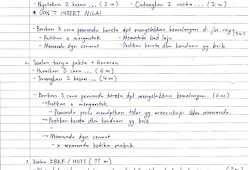 - Nyatakan 2 kesan ... (2 m)
- Cadangkan 2 ... (2 m)
* DON'T INSERT NILAI
- Berikan 3 cara pemandu kereta dpt mengelakkan kemalangan di jln raya [3m]
- Pastikan x mengantuk
- Memandu dgn cermat
- Pastikan kereta dlm keadaan yg baik
2. Soalan tanpa fakta + huraian
- Huraikan 3 cara ... (6 m)
- Terangkan 2 kesan ... (4 m)
- Berikan 3 cara pemandu kereta dpt mengelakkan kemalangan. (6m)
- Pastikan x mengantuk
- Pemandu perlu mendapatkan tidur yg mencukupi
- Pastikan kereta dlm keadaan yg baik
- Memandu dgn cermat
- x memandu ketika mabuk
Soalan KBKK / HOTS (?? m)